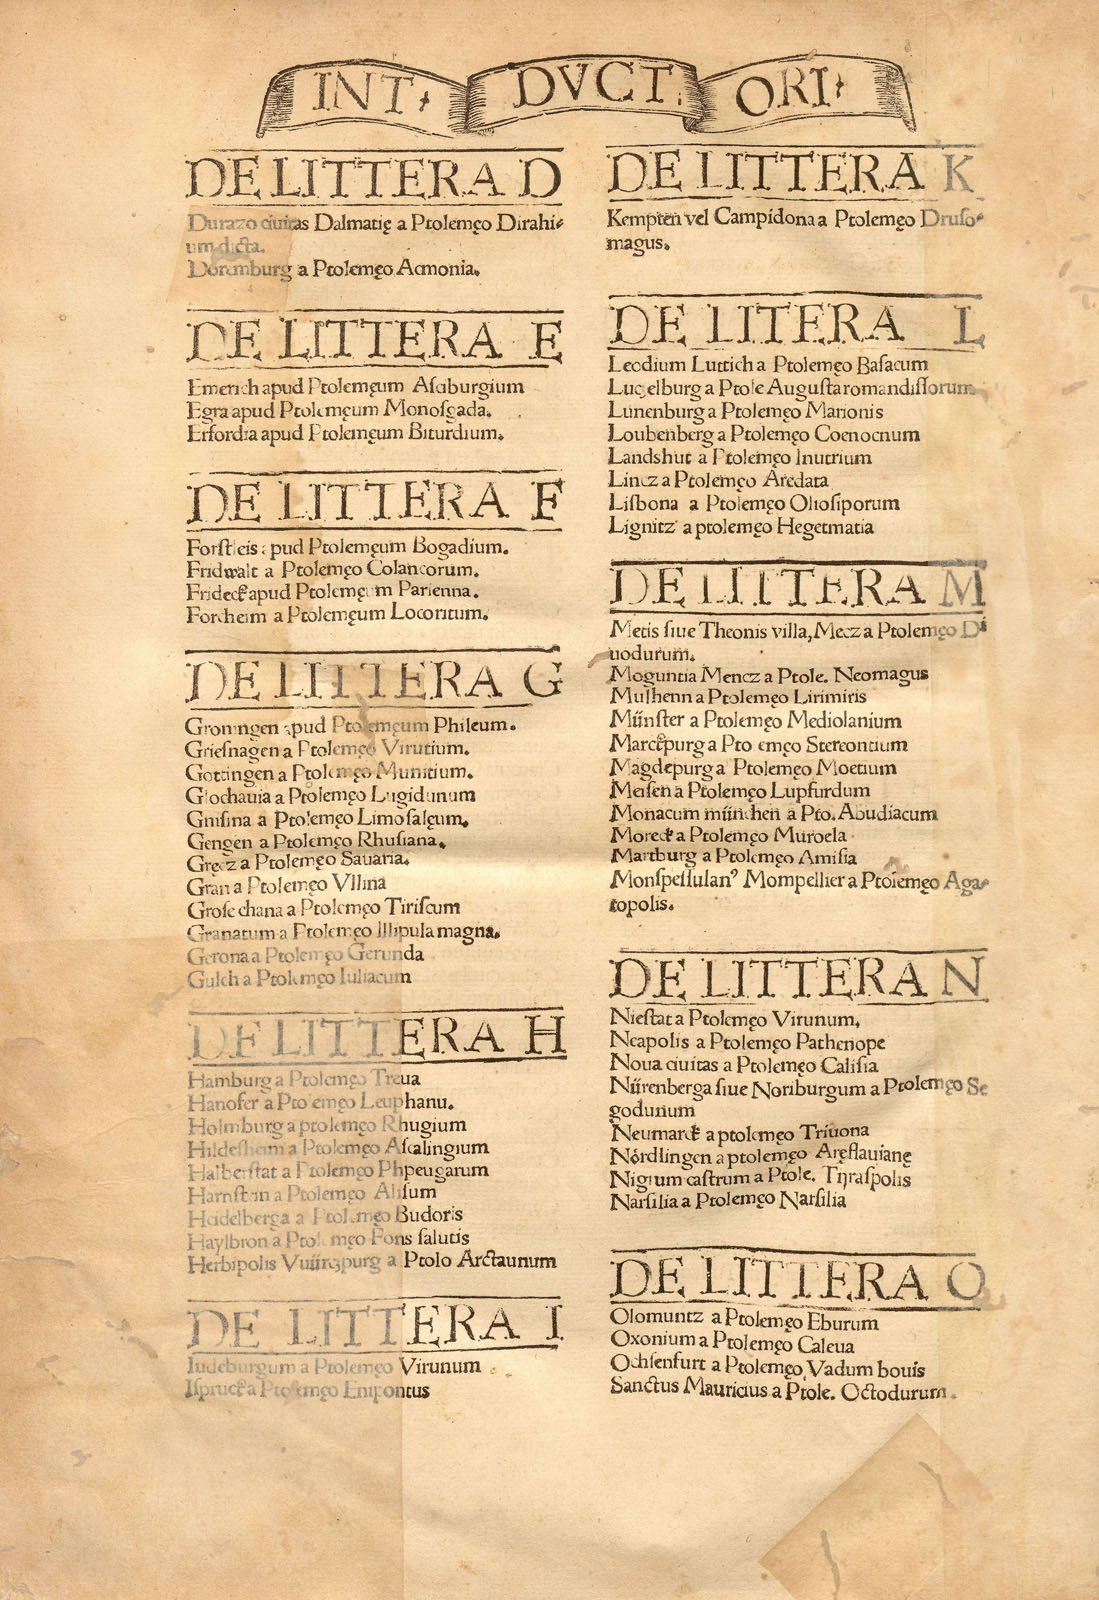 INT DVCT ORI
DE LITTERA D
Durazo ciuitas Dalmatię a Ptolemęo Dirahi⸗
um dicta.
Dorenburg a Ptolemęo Acmonia.
DE LITTERA E
Emerich apud Ptolemęum Asciburgium
Egra apud Ptolemęum Monosgada.
Erfordia apud Ptolemęum Biturdium.
DE LITTERA F
Forstleis apud Ptolemęum Bogadium.
Fridwalt a Ptolemęo Colancorum.
Frideck apud Ptolemęum Parienna.
Forcheim a Ptolemęum Locoritum.
DE LITTERA G
Groningen apud Ptolemęum Phileum.
Griesnagen a Ptolemęo Virutium.
Gottingen a Ptolemęo Munitium.
Glochauia a Ptolemęo Lugidunum
Gnisina a Ptolemęo Limosalęum.
Gengen a Ptolemęo Rhusiana.
Gręcz a Ptolemęo Sauaria.
Gran a Ptolemęo Vllina
Grosechana a Ptolemęo Tiriscum
Granatum a Ptolemęo Illipula magna.
Gerona a Ptolemęo Gerunda
Gulch a Ptolemęo Iuliacum
DE LITTERA H
Hamburg a Ptolemęo Treua
Hanofer a Ptolemęo Leuphanu.
Holmburg a ptolemęo Rhugium
Hildesheim a Ptolemęo Ascalingium
Halberstat a Ptolemęo Phpeugarum
Harnstein a Ptolemęo Alisum
Heidelberga a Ptolemęo Budoris
Haylbron a Ptolemęo Fons salutis
Herbipolis Vuürczpurg a Ptolo Arctaunum
DE LITTERA I
Iudeburgum a Ptolemęo Virunum
Ispruck a Ptolemęo Enipontus
DE LITTERA K
Kempten vel Campidona a Ptolemęo Druso⸗
magus.
DE LITERA L
Leodium Luttich a Ptolemęo Basacum
Luczelburg a Ptole Augustaromandissorum
Lunenburg a Ptolemęo Marionis
Loubenberg a Ptolemęo Coenoenum
Landshut a Ptolemęo Inutrium
Lincz a Ptolemęo Aredata
Lisbona a Ptolemęo Oliosiporum
Lignitz a ptolemęo Hegetmatia
DE LITTERA M
Metis siue Theonis villa, Mecz a Ptolemęo Di
uodurum.
Moguntia Mencz a Ptole. Neomagus
Mulhenn a Ptolemęo Lirimiris
Münster a Ptolemęo Mediolanium
Marckpurg a Ptolemęo Stereontium
Magdepurg a Ptolemęo Moetium
Meisen a Ptolemęo Lupfurdum
Monacum münchen a Pto. Abudiacum
Moreck a Ptolemęo Muroela
Martburg a Ptolemęo Amisia
Monspessulanꝰ Mompellier a Ptolemęo Aga⸗
topolis.
DE LITTERA N
Niestat a Ptolemęo Virunum.
Neapolis a Ptolemęo Pathenope
Noua ciuitas a Ptolemęo Calisia
Nürenberga siue Noriburgum a Ptolemęo Se
godunum
Neumarck a ptolemęo Triuona
Nördlingen a ptolemęo Aręflauianę
Nigium castrum a Ptole. Tyraspolis
Narsilia a Ptolemęo Narsilia
DE LITTERA O
Olomuntz a Ptolemęo Eburum
Oxonium a Ptolemęo Caleua
Ochsenfurt a Ptolemęo Vadum bouis
Sanctus Mauricius a Ptole. Octodurum.